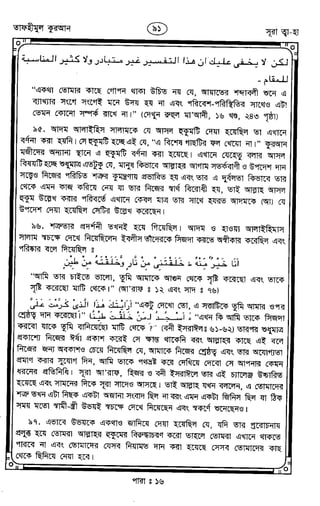 তাফহীমুল কুরআন
৯১
সূরা ত্বা-হা
لكن لا يخفى عليك ان هذا التفسير غير متبادر ولا كثير المناسبة
للمقام -
"একথা তোমার কাছে গোপন থাকা উচিত নয় যে, আয়াতের শব্দাবলী শুনে এ
ব্যাখ্যার সংগে সংগেই মনে উদয় হয় না এবং পরিবেশ-পরিস্থিতির সাথেও এটা
তেমন কোনো সম্পর্ক রাখে না।" (দেখুন রুহুল মা'আনী, ১৬ খণ্ড, ২৪৩ পৃষ্ঠা)
৯৫. আদম আলাইহিস সালামকে যে আসল হুকুমটি দেয়া হয়েছিল তা এখানে
বর্ণনা করা হয়নি। সে হুকুমটি হচ্ছে এই যে, "এ বিশেষ গাছটির ফল খেয়ো না।" কুরআন
মজীদের অন্যান্য স্থানে এ হুকুমটি বর্ণনা করা হয়েছে। এখানে যেহেতু বলার আসল
বিষয়টি হচ্ছে শুধুমাত্র এতটুকু যে, মানুষ কিভাবে আল্লাহর আগাম সতর্কবাণী ও উপদেশ দান
সত্ত্বেও নিজের পরিচিত শত্রুর কুমন্ত্রণায় প্রভাবিত হয় এবং তার এ দুর্বলতা কিভাবে তার
থেকে এমন কাজ করিয়ে নেয় যা তার নিজের স্বার্থ বিরোধী হয়, তাই আল্লাহ আসল
হুকুম উল্লেখ করার পরিবর্তে এখানে কেবল মাত্র তার সাথে হযরত আদমকে (আ) যে
উপদেশ দেয়া হয়েছিল সেটির উল্লেখ করেছেন।
৯৬. শত্রুতার প্রদর্শনী তখনই হয়ে গিয়েছিল। আদম ও হাওয়া আলাইহিমাস
সালাম স্বচক্ষে দেখে নিয়েছিলেন ইবলীস তাঁদেরকে সিজদা করতে অস্বীকার করেছিল এবং
পরিষ্কার বলে দিয়েছিল :
انا خير منه خلقتني من نار وخلقته من طين
"আমি তার চাইতে ভালো, তুমি আমাকে আগুন থেকে সৃষ্টি করেছো এবং তাকে
সৃষ্টি করেছো মাটি থেকে।" (আ'রাফ : ১২ এবং সাদ : ৭৬)
ارأيتك هذا الذي كرمت علي "একটু দেখো তো, এ সত্তাটিকে তুমি আমার ওপর
শ্রেষ্ঠত্ব দান করেছো।" "এখন কি আমি তাকে সিজদা
করবো যাকে তুমি বানিয়েছো মাটি থেকে ?" (বনী ইসরাঈল: ৬১-৬২) তারপর শুধুমাত্র
প্রকাশ্যে নিজের ঈর্ষা প্রকাশ করেই সে ক্ষান্ত থাকেনি বরং আল্লাহর কাছে এই বলে
নিজের জন্য অবকাশও চেয়ে নিয়েছিল যে, আমাকে নিজের শ্রেষ্ঠত্ব এবং তার অযোগ্যতা
প্রমাণ করার সুযোগ দিন, আমি তাকে পথভ্রষ্ট করে দেখিয়ে দেবো সে আপনার কেমন
ধরনের প্রতিনিধি। সূরা আ'রাফ, হিজর ও বনী ইসরাঈলে তার এই চ্যালেঞ্জ উচ্চারিত
হয়েছে এবং সামনের দিকে সূরা সাদেও আসছে। তাই আল্লাহ যখন বললেন, এ তোমাদের
শত্রু তখন এটা নিছক একটা অজানা সংবাদ ছিল না বরং এমন একটা জিনিস ছিল যা ঠিক
সময় মতো স্বামী-স্ত্রী উভয়ই স্বচক্ষে দেখে নিয়েছেন এবং স্বকর্ণে শুনেছেনও।
৯৭. এভাবে উভয়কে একথাও জানিয়ে দেয়া হয়েছিল যে, যদি তার প্ররোচনায়
প্রলুব্ধ হয়ে তোমরা আল্লাহর হুকুমের বিরুদ্ধাচরণ করো তাহলে তোমরা এখানে থাকতে
পারবে না এবং তোমাদের যেসব নিয়ামত দান করা হয়েছে সেসব তোমাদের কাছ
থেকে ছিনিয়ে নেয়া হবে।
পারা : ১৬